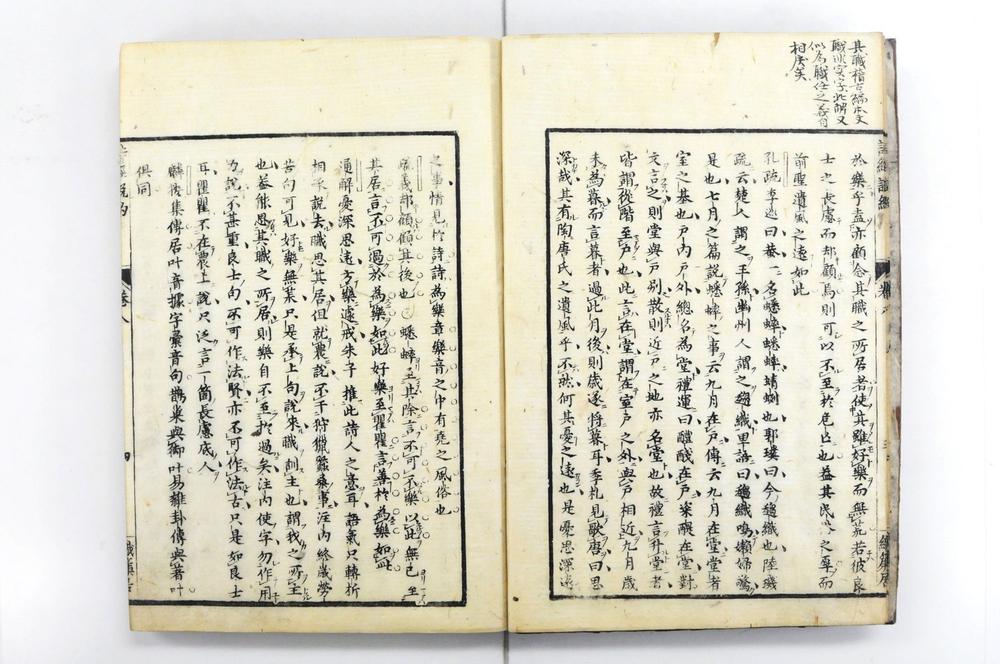 其職稽古編本文
職訓実字此謂又
似為職任之義前
相戾矣
於樂乎盍亦顧念其職之所居者使其雖好樂而無荒若彼良
士之長慮而却顧焉則可以不至於危亡也蓋其民俗之厚而
前聖遺風之遠如此
孔疏李巡曰蛬一名蟋蟀蟋蟀蜻蛚也郭璞曰今趨織也陸璣
疏云楚人謂之王孫幽州人謂之趨織里語曰趨織鳴嬾婦驚
是也七月之篇說蟋蟀之事云九月在戶傳云九月在堂堂者
室之基也戶內戶外總名為堂禮運曰醴醆在戶粢醍在堂對
文言之則堂與戶別散則近戶之地亦名堂也故禮言升堂者
皆謂從階至戶也此言在堂謂在室戶之外與戶相近九月歲
未為暮而言暮者過此月後則歲遂將暮耳季札見歌唐曰思
深哉其有陶唐氏之遺風乎不然何其憂之遠也是憂思深遠
之事情見於詩詩為樂章樂音之中有堯之風俗也
疏義却顧顧其後也 蟋蟀至其除言不可不樂以此無已至
其居言不可過於為樂如此好樂至瞿瞿言善於為樂如此
通解憂深思遠方樂遽戒朱子推此詩人之意耳語氣只轉折
相承說去職思其居但就農說不干狩獵蠶桑事注內終歲勞
苦句可見好樂無荒只是承上句說來職訓主也謂我之所主
也蓋能思其職之所居則樂自不至於過矣注內使字勿作用
力說不甚重良士句不可作法賢亦不可作法古只是如良士
耳瞿瞿不在農上說只泛言一箇長慮底人
麟後集傳居叶音據字彙音句鵲巢與御叶易雜卦傳與著叶
俱同